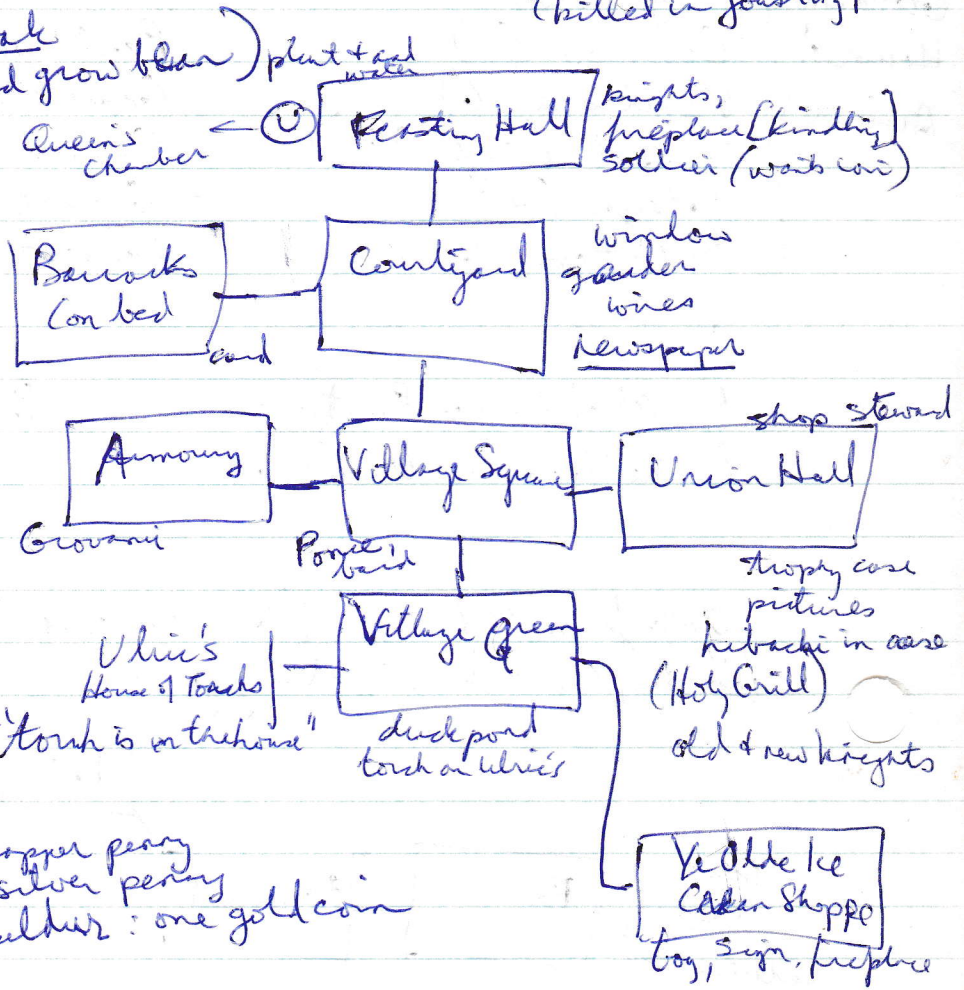 (killed in jousting)
d grow bean) plant + add
water
Queen's
chamber
← U
Feasting Hall
knights,
fireplace [kindling]
soldier (wants coin)
Barracks
(on bed
card
Courtyard
window
gander
wires
newspaper
Armoury
Giovanni
Village Square
bard
shop steward
Union Hall
trophy case
pictures
hibachi in case
(Holy Grill)
old + new knights
Ulric's
House of Torches
"torch is in the house"
Village green
duck pond
torch on Ulric's
opper penny
silver penny
: one gold coin
Ye Olde Ice
Cream Shoppe
boy, sign, fireplace